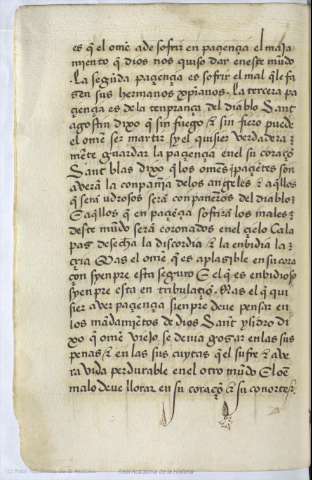 es q̃ el ome ade sofrir en paçençia el maja
miento q̃ dios nos quiso dar eneste mũdo
. La segũda paçençia es sofrir el mal q̃ le fa
sen sus hermanos xp̃ianos . La tercera pa
çençia es dela tenptança del diablo Sant
agostin dixo q̃ sin fuego & sin fiero puede
el ome ser martir sy el quisier verdadera
mẽte guardar la paçençia enel su coraçõ
Sant blas dixo q̃ los omẽs paçẽtes son
averã la conpañia delos angeles & aq̃llos
q̃ será udrosos serã conpañeros del diablo
E aq̃llos q̃ en paçẽçia sofrirã los males
deste mũdo serã coronados enel çielo Ca la
pas desecha la discordia & la enbidia la
Mas el ome q̃ es aplasible en su cora
con syenpre esta seguro E el q̃ es enbidioso
syenpre esta en tribulaçiõ . Mas el q̃ qui
sier aver paçençia sienpre deve pensar en
los mãdamiẽtos de dios Sant ysidro di
xo q̃ ome viejo se devia gosar enlas sus
penas & en las sus cuytas q̃ el sufre & ave
ra vida perdurable enel otro mũdo E el oẽ
malo deve llorar en su coraçõ & su conorte
Real Academia de la Historia